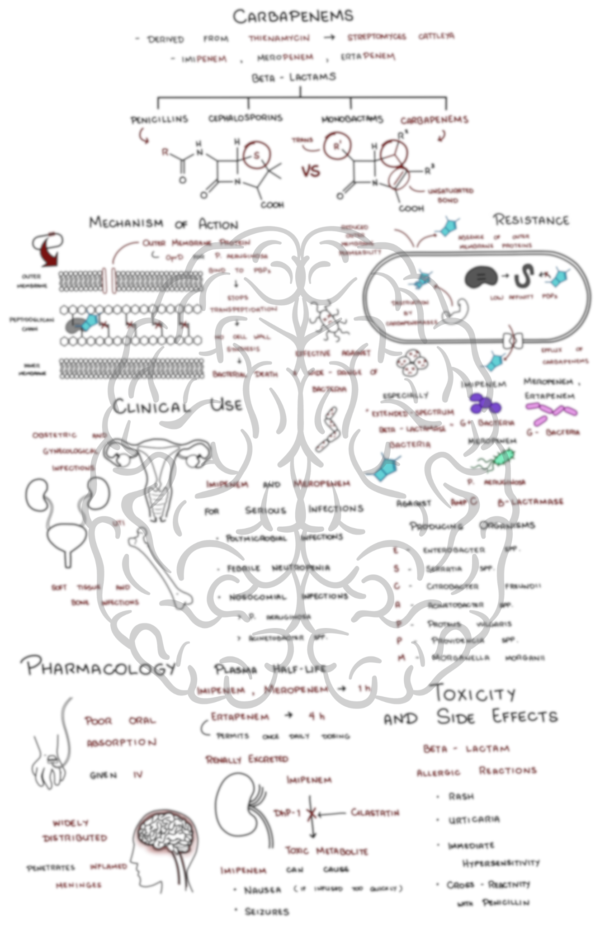 CARBAPENEMS
- DERIVED FROM THIENAMYCIN → STREPTOMYCES CATTLEYA
- IMIPENEM , MEROPENEM , ERTAPENEM
BETA - LACTAMS
PENICILLINS CEPHALOSPORINS MONOBACTAMS CARBAPENEMS
TRANS
R N H H S O N COOH
VS
R¹ H H R² R³ O N COOH
UNSATURATED
BOND
MECHANISM OF ACTION
OUTER MEMBRANE PROTEIN
OprD IN P. AERUGINOSA
OUTER
MEMBRANE
BIND TO PBPs
STOPS
TRANSPEPTIDATION
PEPTIDOGLYCAN
CHAIN
NO CELL WALL
INNER
MEMBRANE
BACTERIAL DEATH
EFFECTIVE AGAINST
A WIDE - RANGE OF
BACTERIA
RESISTANCE
REDUCED
OUTER
MEMBRANE
PERMEABILITY
ABSENCE OF OUTER
MEMBRANE PROTEINS
DESTRUCTION
BY
CARBAPENEMASES
LOW AFFINITY PBPs
EFFLUX OF
CARBAPENEMS
ESPECIALLY
EXTENDED - SPECTRUM
BETA - LACTAMASE
BACTERIA
IMIPENEM
G+ BACTERIA
MEROPENEM ,
ERTAPENEM
G- BACTERIA
MEROPENEM
P. AERUGINOSA
AGAINST AMP C β - LACTAMASE
PRODUCING ORGANISMS
E - ENTEROBACTER SPP.
S - SERRATIA SPP.
C - CITROBACTER FREUNDII
A - ACINETOBACTER SPP.
P - PROTEUS VULGARIS
P - PROVIDENCIA SPP.
M - MORGANELLA MORGANII
CLINICAL USE
OBSTETRIC AND
GYNECOLOGICAL
INFECTIONS
UTI
SOFT TISSUE AND
BONE INFECTIONS
IMIPENEM AND MEROPENEM
FOR SERIOUS INFECTIONS
• POLYMICROBIAL INFECTIONS
• FEBRILE NEUTROPENIA
• NOSOCOMIAL INFECTIONS
> P. AERUGINOSA
> ACINETOBACTER SPP.
PHARMACOLOGY
POOR ORAL
ABSORPTION
GIVEN IV
WIDELY
DISTRIBUTED
PENETRATES INFLAMED
MENINGES
PLASMA HALF-LIFE
IMIPENEM , MEROPENEM → 1 h
ERTAPENEM → 4 h
PERMITS ONCE DAILY DOSING
RENALLY EXCRETED
IMIPENEM
DHP-1 CILASTATIN
TOXIC METABOLITE
IMIPENEM CAN CAUSE
• NAUSEA ( IF INFUSED TOO QUICKLY )
• SEIZURES
TOXICITY
AND SIDE EFFECTS
BETA - LACTAM
ALLERGIC REACTIONS
• RASH
• URTICARIA
• IMMEDIATE
HYPERSENSITIVITY
• CROSS - REACTIVITY
WITH PENICILLIN